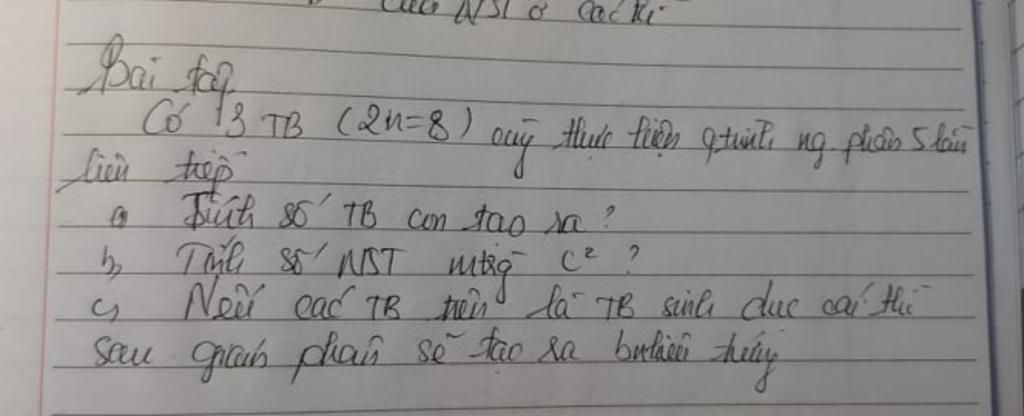 của NST ở các kì
Bài tập
Có 13 TB (2n=8) cùng thực hiện qtrình ng phân 5 lần
liên tiếp
a Tính số TB con tạo ra?
b, Tính số NST mtrg c² ?
c, Nếu các TB trên là TB sinh dục cái thì
sau giảm phân sẽ tạo ra bnhiêu trứng